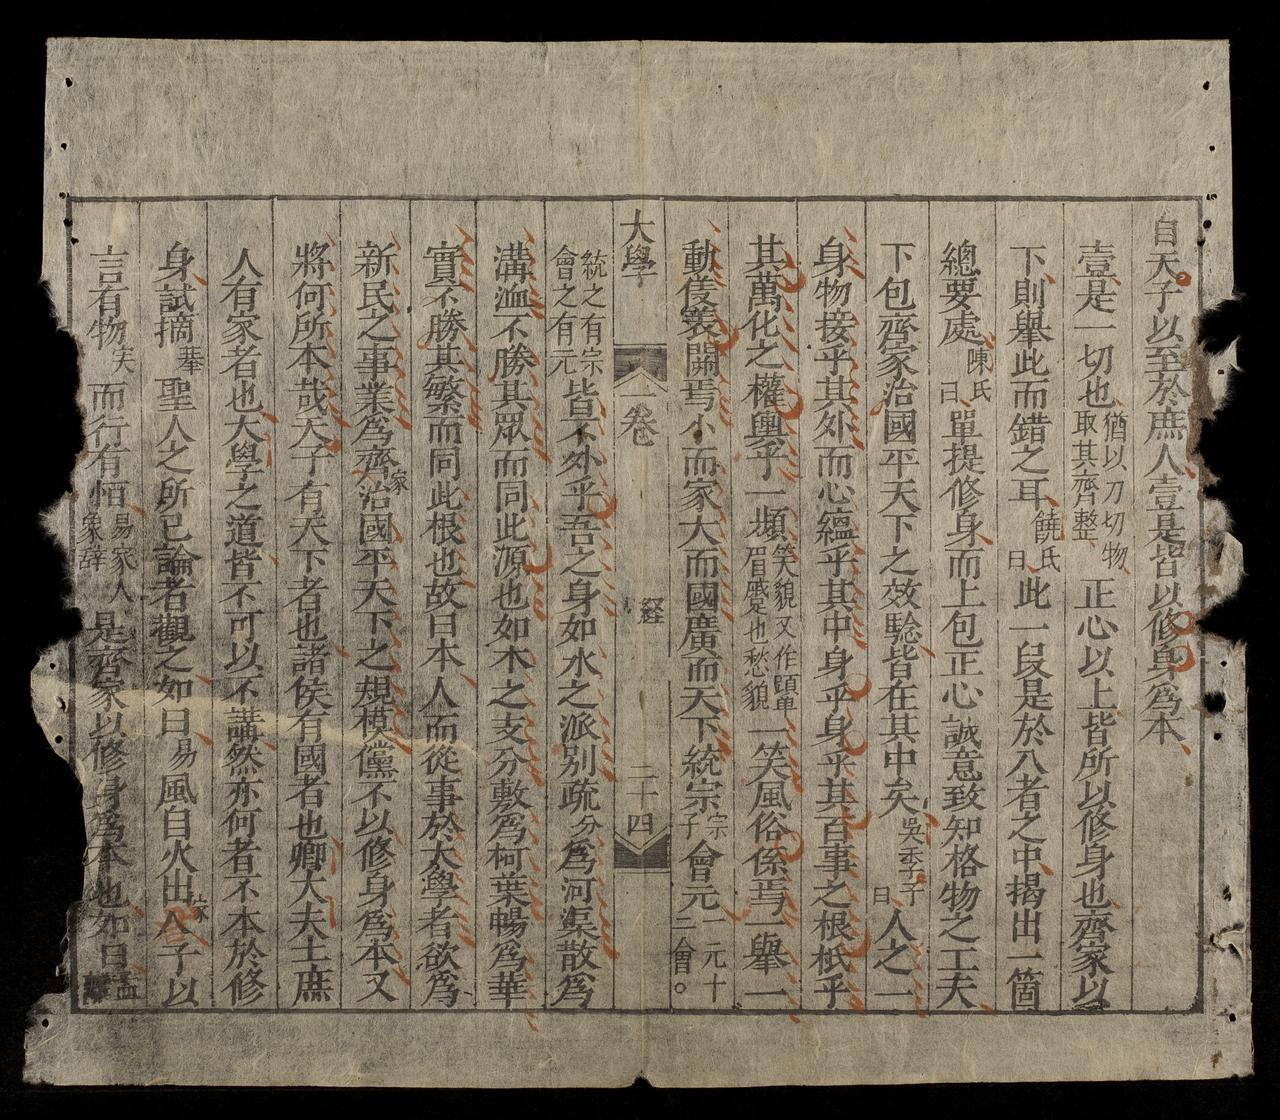 自天子以至於庶人壹是皆以修身爲本
壹是一切也猶以刀切物取其齊整正心以上皆所以修身也齊家以
下則舉此而錯之耳饒氏曰此一段是於八者之中揭出一箇
總要處陳氏曰單提修身而上包正心誠意致知格物之工夫
下包齊家治國平天下之效驗皆在其中矣吳季子曰人之一
身物接乎其外而心蘊乎其中身乎身乎其百事之根柢乎
其萬化之權輿乎一嚬笑貌又作顰眉蹙也愁貌一笑風俗係焉一舉一
動僅䙝開焉小而家大而國廣而天下統宗宗子會元一元十二會。
大學 一卷 經 二十四
統之有宗會之有元皆不外乎吾之身如水之派別疏分爲河渠散爲
溝洫不勝其眾而同此源也如木之支分敷爲柯葉暢爲華
實不勝其繁而同此根也故曰本人而從事於大學者欲爲
新民之事業爲齊家治國平天下之規模儻不以修身爲本又
將何所本哉天子有天下者也諸侯有國者也卿大夫士庶
人有家者也大學之道皆不可以不講然亦何者不本於修
身試摘舉聖人之所已論者觀之如曰易風自火出家人子以
言有物実而行有恒易家人象辞是齊家以修身爲本也如曰孟